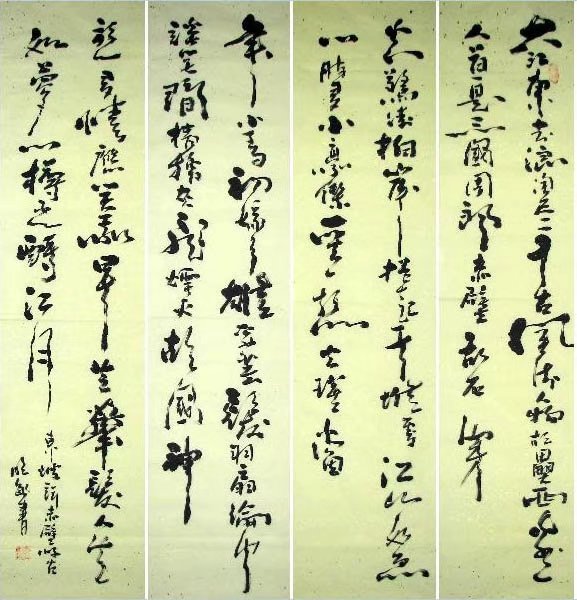 大江東去浪淘盡千古風流人物故壘西邊
人道是三國周郎赤壁亂石穿
空驚濤拍岸捲起千堆雪江山如畫
一時多少豪傑遙想公瑾當
年小喬初嫁了雄姿英發羽扇綸巾
談笑間檣櫓灰飛煙滅故國神
遊多情應笑我早生華髮人生
如夢一樽還酹江月
東坡詞赤壁懷古
書